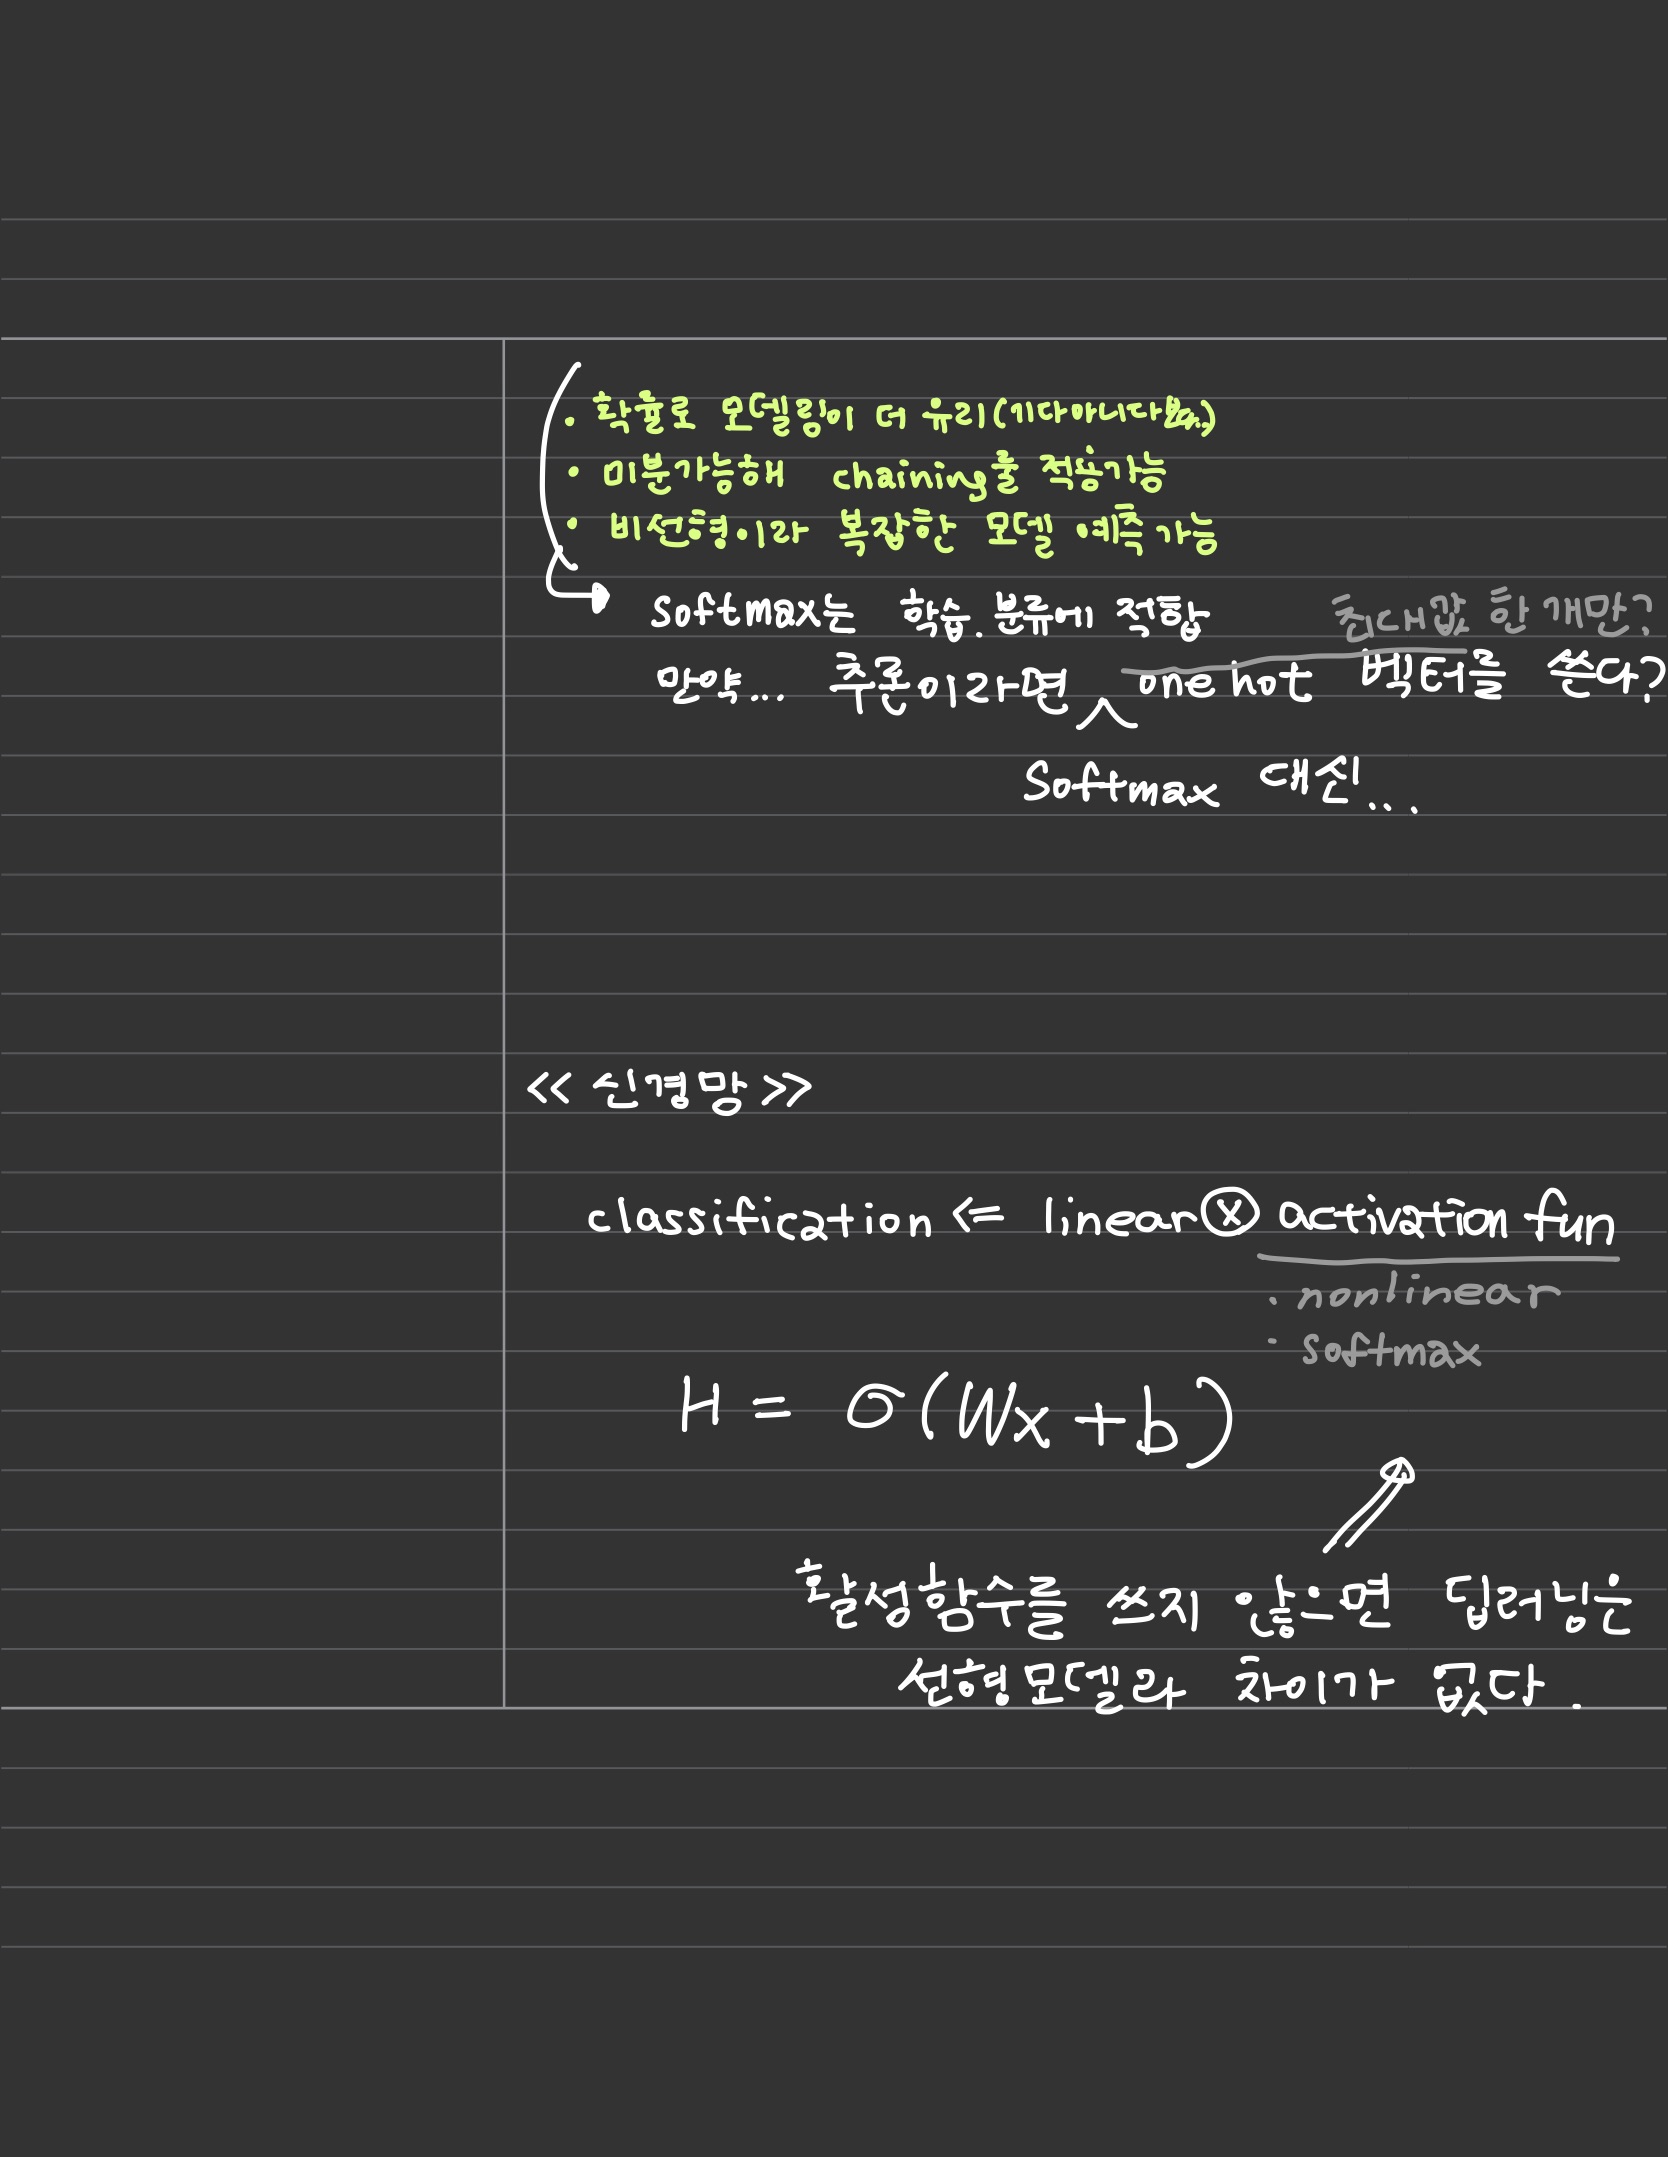 · 확률로 모델링이 더 유리(기다아니다
· 미분가능해 chaining을 적용가능
· 비선형이라 복잡한 모델 예측 가능
softmax는 학습.분류에 적합
최대값 한개만?
만약... 추론이라면 one hot 벡터를 쓴다?
Softmax 대신...
<< 신경망 >>
classification <= linear ⓧ activation fun
· nonlinear
· softmax
H = σ(Wx + b)
활성함수를 쓰지 않으면 딥러닝은
선형모델과 차이가 없다.